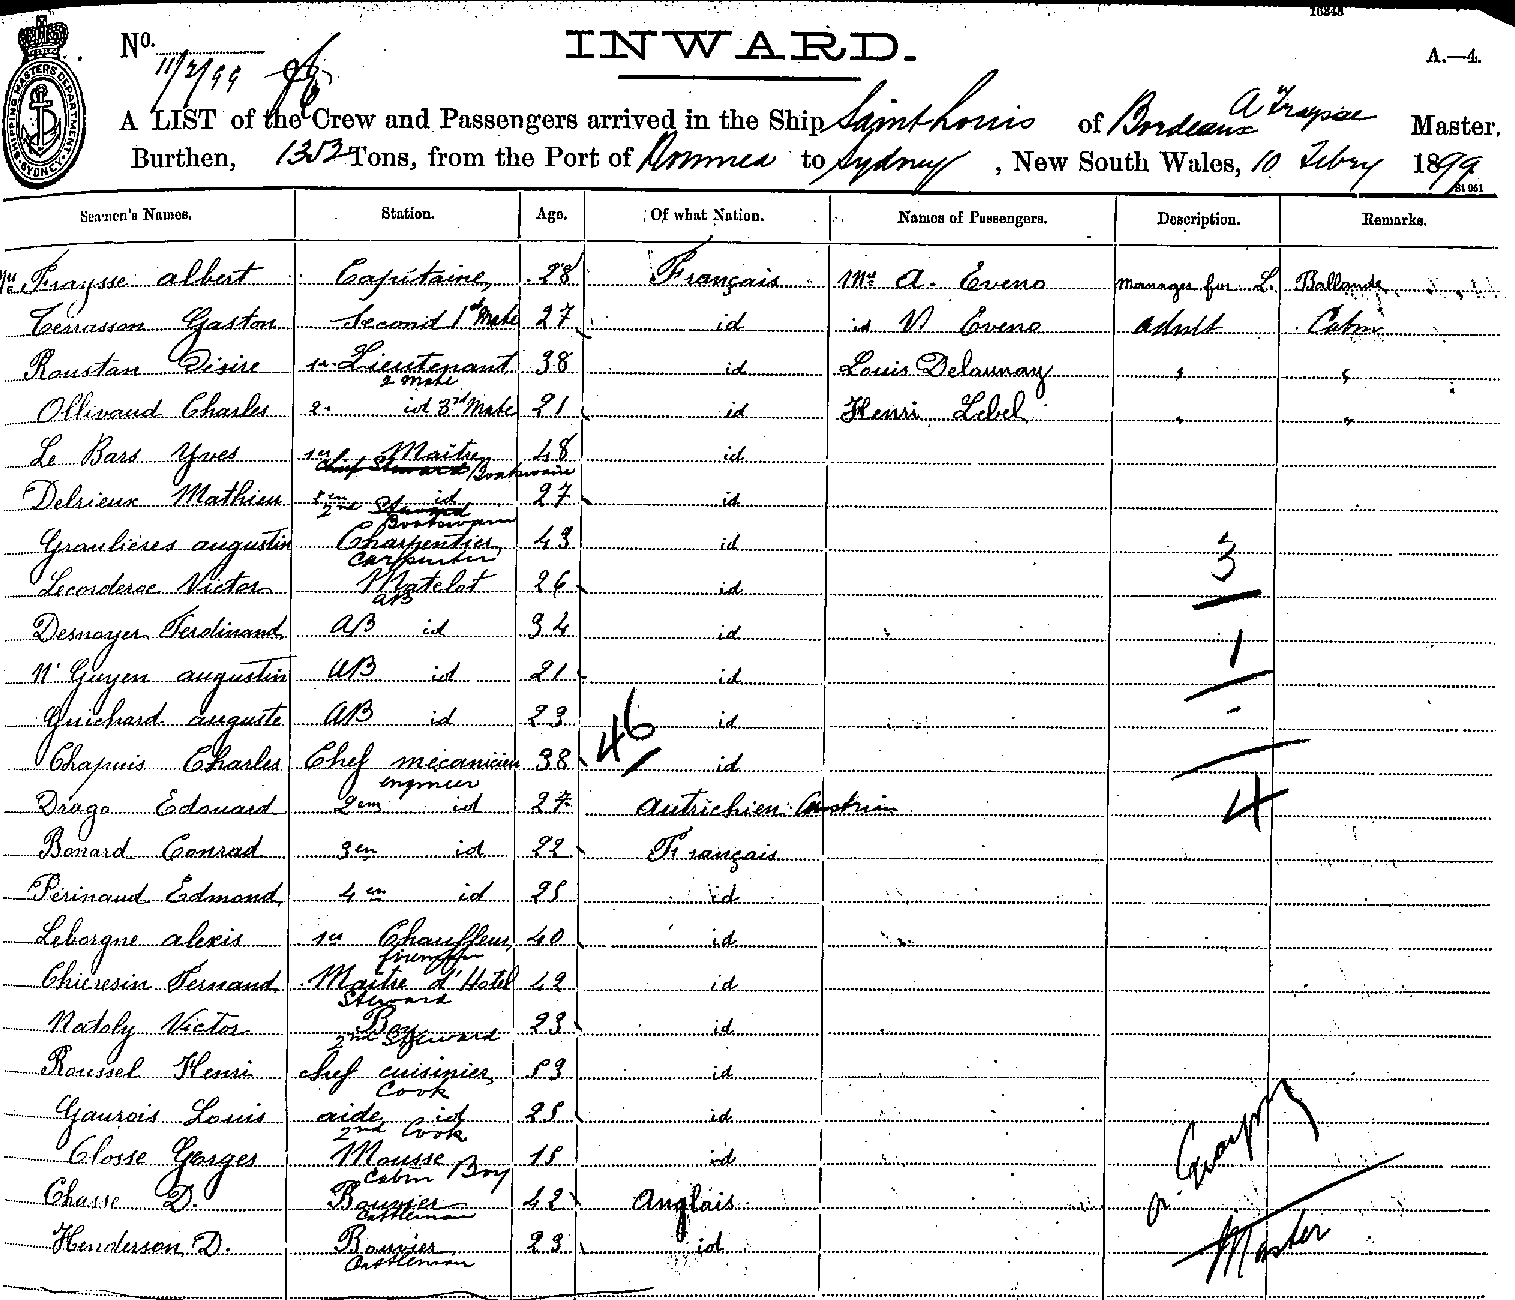 16248
No. 11/2/99
INWARD.
A.—4.
SHIPPING MASTERS DEPARTMENT SYDNEY
A LIST of the Crew and Passengers arrived in the Ship Saint Louis of Bordeaux A Fraysse Master,
Burthen, 1352 Tons, from the Port of Noumea to Sydney, New South Wales, 10 Febry 1899
Seamen's Names. Station. Age. Of what Nation. Names of Passengers. Description. Remarks.
Fraysse albert Capitaine 28 Français Mr A. Eveno Manager for L. Ballande
Terrasson Gaston Second 1st Mate 27 id id V Eveno adult Cabin
Roustan Désiré 1er Lieutenant 38 id Louis Delaunay " "
2 Mate
Ollivaud Charles 2e id 3rd Mate 21 id Henri Lebel " "
Le Bars Yves 1er Maitre 48 id
Chief Steward Boatswain
Delrieux Mathieu 2em id 27 id
2nd Steward
Boatswain
Graulières augustin Charpentier 43 id
Carpenter
3
Lecorderoc Victor Matelot 26 id
AB
Desnoyer Ferdinand AB id 34 id
1
N'Guyen augustin AB id 21 id
Guichard auguste AB id 23 id
46
Chapuis Charles Chef mécanicien 38 id
engineer
4
Drago Edouard 2em id 27 autrichien Austrian
Bonard Conrad 3em id 22 Français
Périnaud Edmond 4em id 25 id
Leborgne alexis 1er Chauffeur 40 id
Chieresin Fernand Maitre d'Hotel 42 id
Steward
Nataly Victor Boy 23 id
2nd Steward
Roussel Henri chef cuisinier 53 id
Cook
Gaurois Louis aide id 25 id
2nd Cook
Closse Georges Mousse 15 id
Cabin Boy
Chasse D. Bouvier 42 Anglais
Cattleman
Henderson D. Bouvier 23 id
Cattleman
A. Fraysse
Master